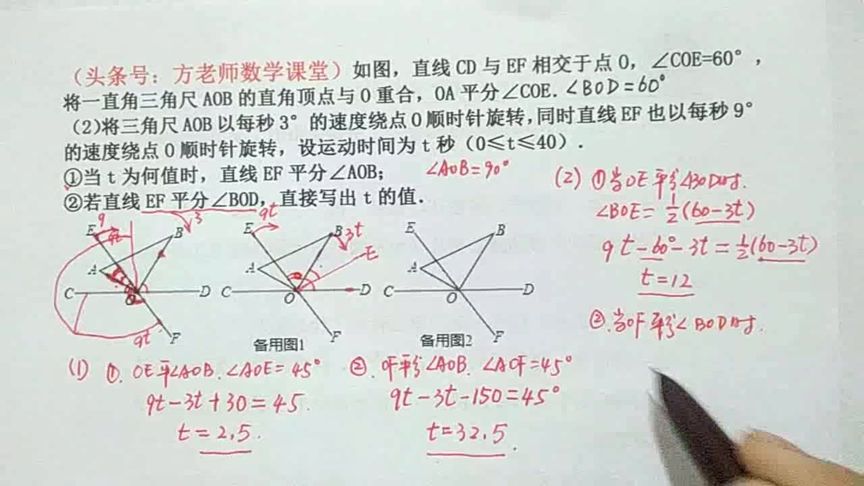 (头条号：方老师数学课堂) 如图，直线 CD 与 EF 相交于点 O，∠COE=60°，
将一直角三角尺 AOB 的直角顶点与 O 重合，OA 平分∠COE. ∠BOD=60°
(2)将三角尺 AOB 以每秒 3° 的速度绕点 O 顺时针旋转，同时直线 EF 也以每秒 9°
的速度绕点 O 顺时针旋转，设运动时间为 t 秒（0≤t≤40）.
①当 t 为何值时，直线 EF 平分∠AOB； ∠AOB=90°
②若直线 EF 平分∠BOD，直接写出 t 的值.
(2) ①当OE平分∠BOD时.
∠BOE=½(60-3t)
9t-60°-3t=½(60-3t)
t=12
②.当OF平分∠BOD时.
9 9t E B 3 A C O D F 9t
9t E B 3t E A C O D F
E B A C O D F
备用图1
备用图2
(1) ①. OE平∠AOB. ∠AOE=45°
9t-3t+30=45.
t=2.5.
②. OF平分∠AOB. ∠AOF=45°
9t-3t-150=45°
t=32.5.